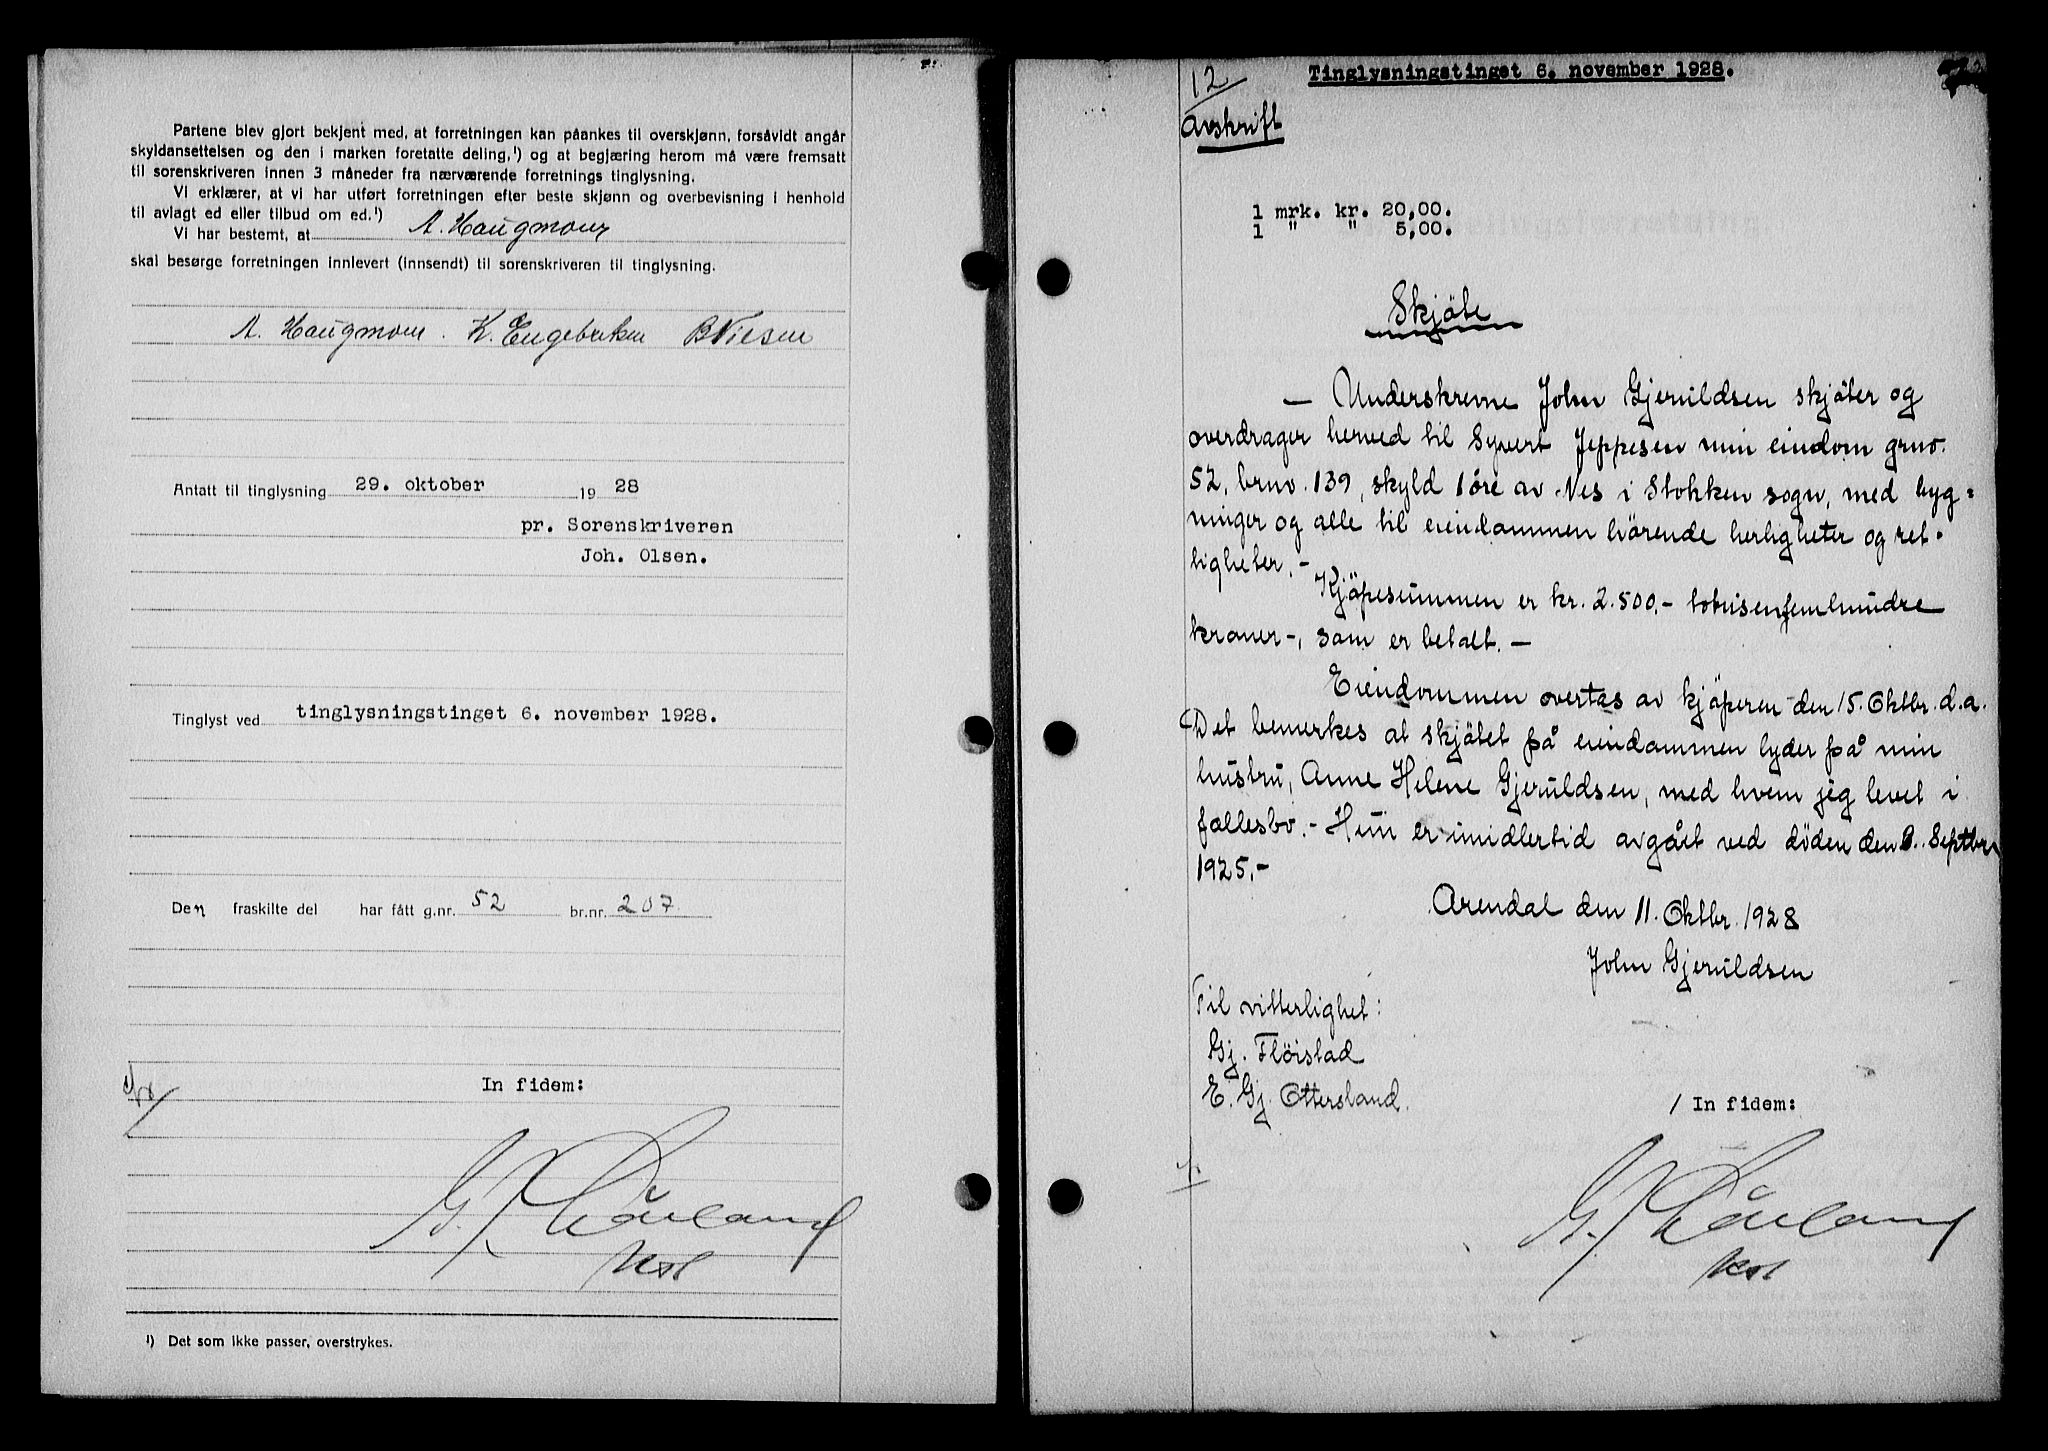 Partene blev gjort bekjent med, at forretningen kan påankes til overskjønn, forsåvidt angår
skyldansettelsen og den i marken foretatte deling,¹) og at begjæring herom må være fremsatt
til sorenskriveren innen 3 måneder fra nærværende forretnings tinglysning.
Vi erklærer, at vi har utført forretningen efter beste skjønn og overbevisning i henhold
til avlagt ed eller tilbud om ed.¹)
Vi har bestemt, at A. Haugmoen
skal besørge forretningen innlevert (innsendt) til sorenskriveren til tinglysning.
A. Haugmoen. K. Engebretsen
Antatt til tinglysning 29. oktober 19 28
pr. Sorenskriveren
Joh. Olsen.
Tinglyst ved tinglysningstinget 6. november 1928.
Den fraskilte del har fått g.nr. 52 br.nr. 207
In fidem:
¹) Det som ikke passer, overstrykes.
12
Tinglysningstinget 6. november 1928.
Avskrift
1 mrk. kr. 20,00.
1 " " 5,00.
Skjöte
— Underskrevne John Gjeruldsen skjöter og
overdrager herved til Syvert Jeppesen min eindom grno.
52, brno. 139, skyld 1 öre av Nes i Stokken sogn, med byg=
ninger og alle til eiendommen hörende herligheter og ret-
ligheter.-
Kjöpesummen er kr. 2.500,- totusenfemhundre
kroner-, som er betalt. —
Eiendommen overtas av kjöperen den 15. Oktbr. d.a.
Det bemerkes at skjötet på eiendommen lyder på min
hustru, Anne Helene Gjeruldsen, med hvem jeg levet i
fællesbo.- Hun er imidlertid avgået ved döden den Septbr
1925.-
Arendal den 11. Oktbr. 1928
John Gjeruldsen
Til vitterlighet:
Gj. Flöistad
E. Gj. Ottersland.
/ In fidem: